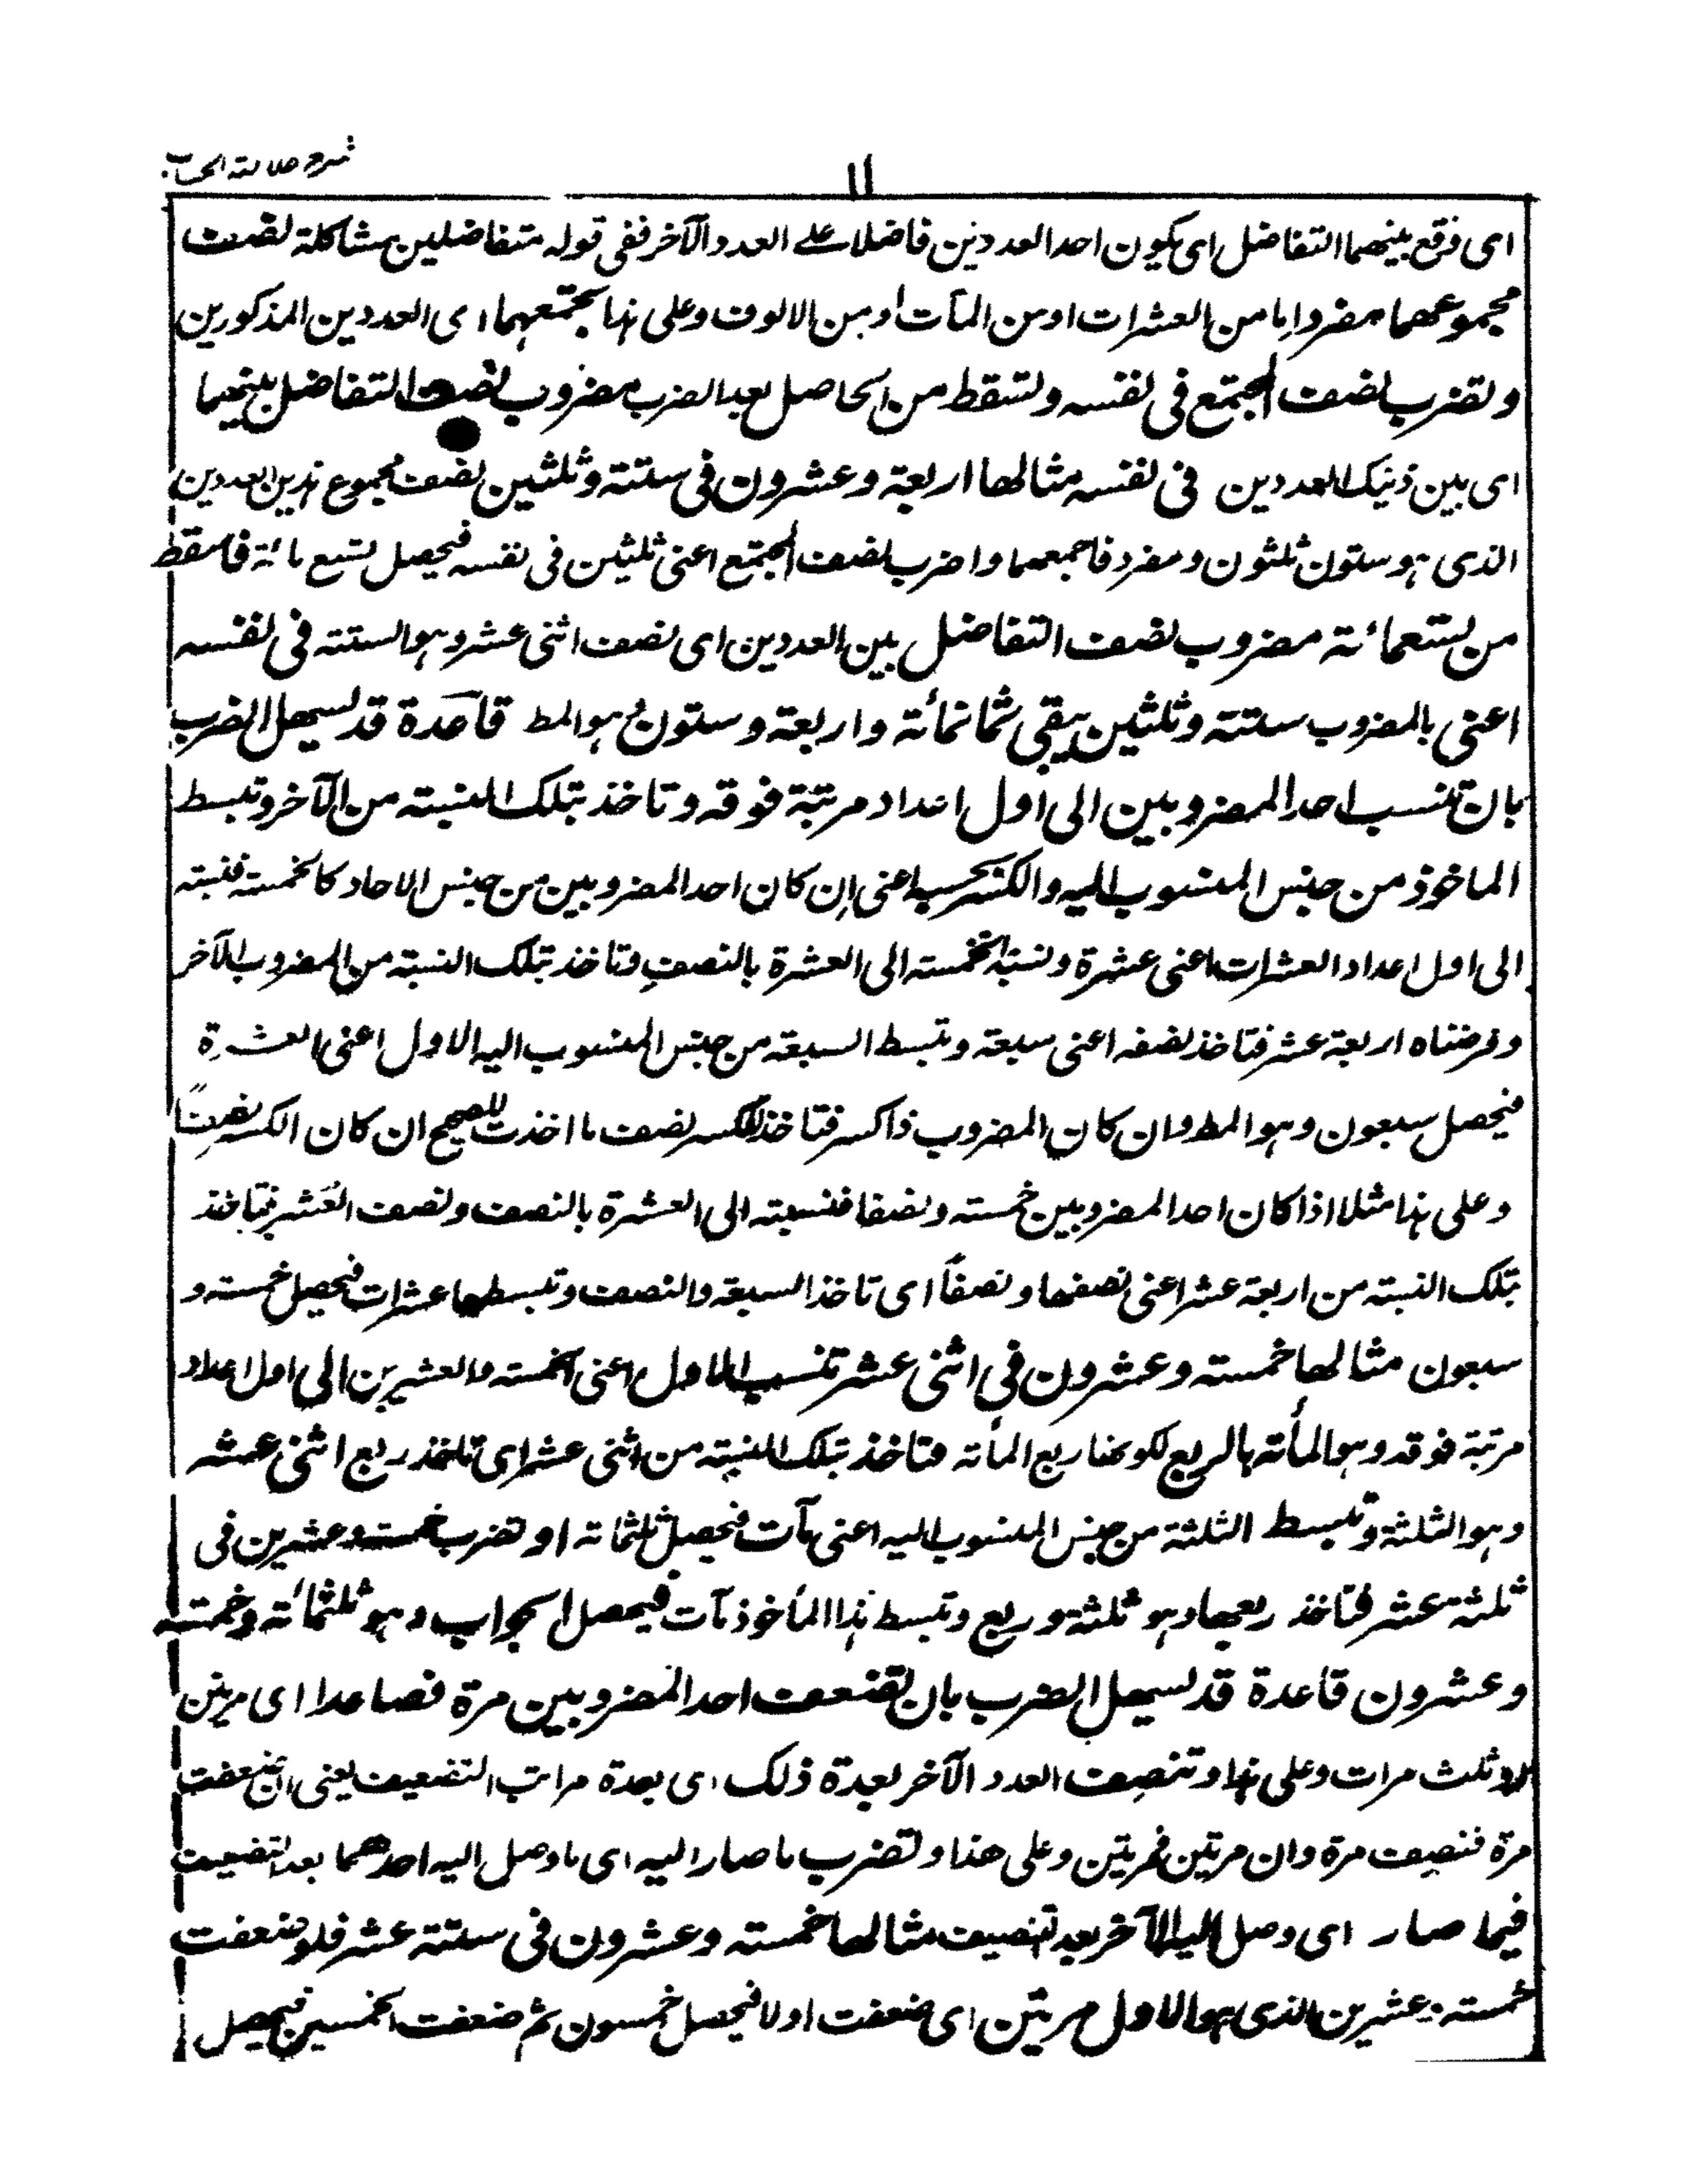 شرح خلاصة الحساب
١١
اى فرقع بينهما التفاضل اى يكون احد العددين فاضلا على العدد الآخر ففى قوله متفاضلين مشاكلة نصف
مجموعهما مفرد اما من العشرات او من المآت او من الالوف وعلى هذا تجمعهما اى العددين المذكورين
وتضرب نصف المجتمع فى نفسه وتسقط من الحاصل بعد الضرب مضروب نصف التفاضل بينهما
اى بين ذينك العددين فى نفسه مثالها اربعة وعشرون فى ستة وثلثين نصف مجموع هذين العددين
الذى هو ستون ثلثون ومفرد فاجمعهما واضرب نصف المجتمع اعنى ثلثين فى نفسه فيحصل تسع مائة فاسقط
من تسعمائة مضروب نصف التفاضل بين العددين اى نصف اثنى عشر وهو الستة فى نفسه
اعنى بالمضروب ستة وثلثين يبقى ثمانمائة واربعة وستون وهو المط قاعدة قد يسهل الضرب
بان تنسب احد المضروبين الى اول اعداد مرتبة فوقه وتاخذ بتلك النسبة من الآخر وتبسط
الماخوذ من جنس المنسوب اليه والكسر بحسبه اعنى ان كان احد المضروبين من جنس الاحاد كالخمسة فنسبته
الى اول اعداد العشرات اعنى عشرة ونسبة الخمسة الى العشرة بالنصف وتاخذ بتلك النسبة من المضروب الآخر
وفرضناه اربعة عشر فتاخذ نصفه اعنى سبعة وتبسط السبعة من جنس المنسوب اليه الاول اعنى العشرة
فيحصل سبعون وهو المط وان كان المضروب ذا كسر فتاخذ للكسر نصف ما اخذت للصحيح ان كان الكسر نصفًا
وعلى هذا مثلا اذا كان احد المضروبين خمسة ونصفا فنسبته الى العشرة بالنصف ونصف العُشر فتاخذ
بتلك النسبة من اربعة عشر اعنى نصفها ونصفًا اى تاخذ السبعة والنصف وتبسطها عشرات فيحصل خمسة و
سبعون مثالها خمسة وعشرون فى اثنى عشر تنسب الاول اعنى الخمسة والعشرين الى اول اعداد
مرتبة فوقه وهو المأته بالربع لكونها ربع المأته وتاخذ بتلك النسبة من اثنى عشر اى تاخذ ربع اثنى عشر
وهو الثلثة وتبسط الثلثة من جنس المنسوب اليه اعنى مآت فيحصل ثلثمائة او تضرب خمسة وعشرين فى
ثلثة عشر فتاخذ ربعها وهو ثلثة وربع وتبسط هذا المأخوذ مآت فيحصل الجواب وهو ثلثمائة وخمسة
وعشرون قاعدة قد يسهل الضرب بان تضعف احد المضروبين مرة فصاعدا اى مرتين
او ثلث مرات وعلى هذا وتنصف العدد الآخر بعدة ذلك اى بعدة مراتب التضعيف يعنى ان ضعفت
مرة فنصف مرة وان مرتين فمرتين وعلى هذا وتضرب ما صار اليه اى ما وصل اليه احدهما بعد التضعيف
فيما صار اى وصل اليه الآخر بعد تنصيف مثالها خمسة وعشرون فى ستة عشر فلو ضعفت
خمسة وعشرين الذى هو الاول مرتين اى ضعفت اولا فيحصل خمسون ثم ضعفت الخمسين فيحصل